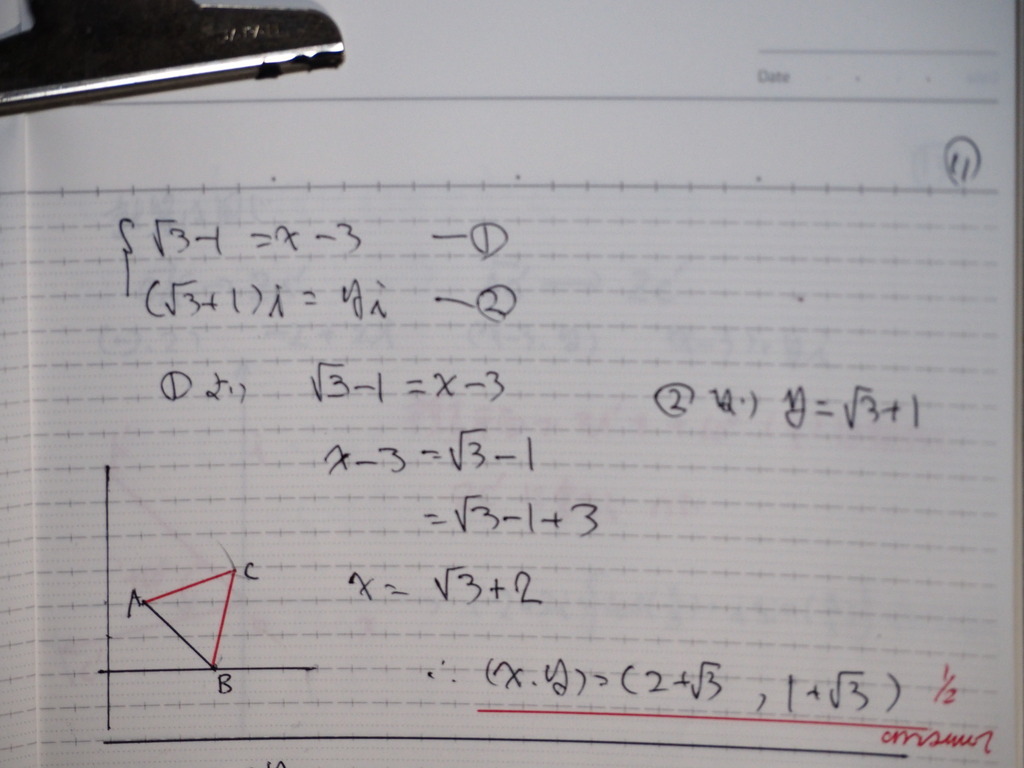 Date
⑪
√3-1 = x-3 —①
(√3+1)i = yi —②
①より √3-1 = x-3
②より y = √3+1
x-3 = √3-1
= √3-1+3
x = √3+2
A
C
B
∴ (x.y) = (2+√3, 1+√3) 1/2
answer